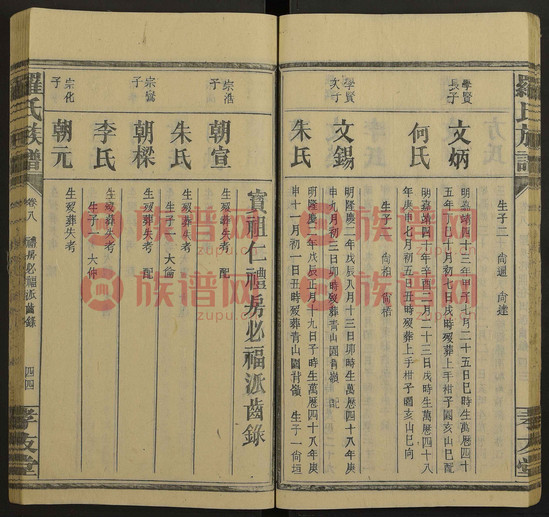 生子二 尚迴 尚達
學賢長子
文炳
明嘉靖四十三年甲子七月二十五日巳時生萬曆四十八
五年 巳十月初七日戌時歿葬上手柑子園亥山巳向
何氏
明嘉靖四十年辛酉八月二十三日戌時生萬曆四十八
年庚申七月初五日丑時歿葬上手柑子園亥山巳向
生子二 尚相 尚楷
學賢次子
文錫
明隆慶二年戊辰八月十三日卯時生萬曆四十八年庚
申九月初三日卯時歿葬青山圓背嶺 配
朱氏
明隆慶二年戊辰正月十九日子時生萬曆四十八年庚
申十一月初一日丑時歿葬青山圓背嶺 生子一尚垣
寶祖仁禮房必福派齒錄
宗浩子
朝宣
生歿葬失考 配
朱氏
生歿葬失考
生子一大倫
宗鸞子
朝樑
生歿葬失考 配
李氏
生歿葬失考
生子一大仲
宗化子
朝元
生歿葬失考
羅氏族譜
卷八
禮房必福派齒錄
四四
孝友堂
羅氏族譜
孝友堂
族谱网
zupu.cn